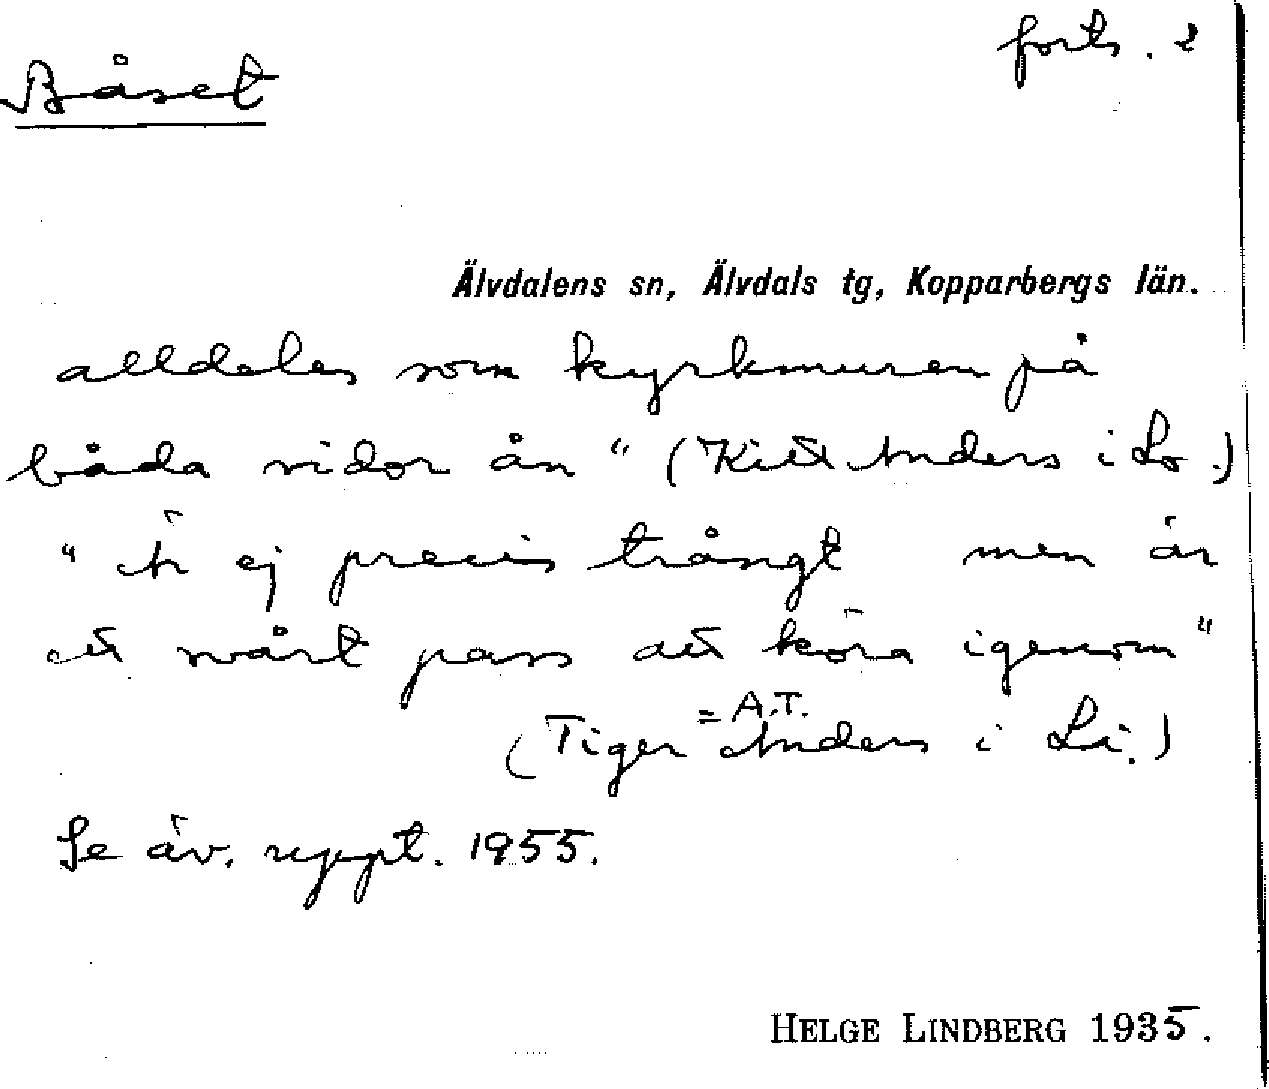 Båset
forts. 2
Älvdalens sn, Älvdals tg, Kopparbergs län.
alldeles som kyrkmuren på
båda sidor ån" (Kitt Anders i Lo.)
"Är ej precis trångt men är
ett svårt pass att köra igenom"
(Tiger Anders i Lå.)
= A.T.
Se äv. uppt. 1955.
HELGE LINDBERG 1935.